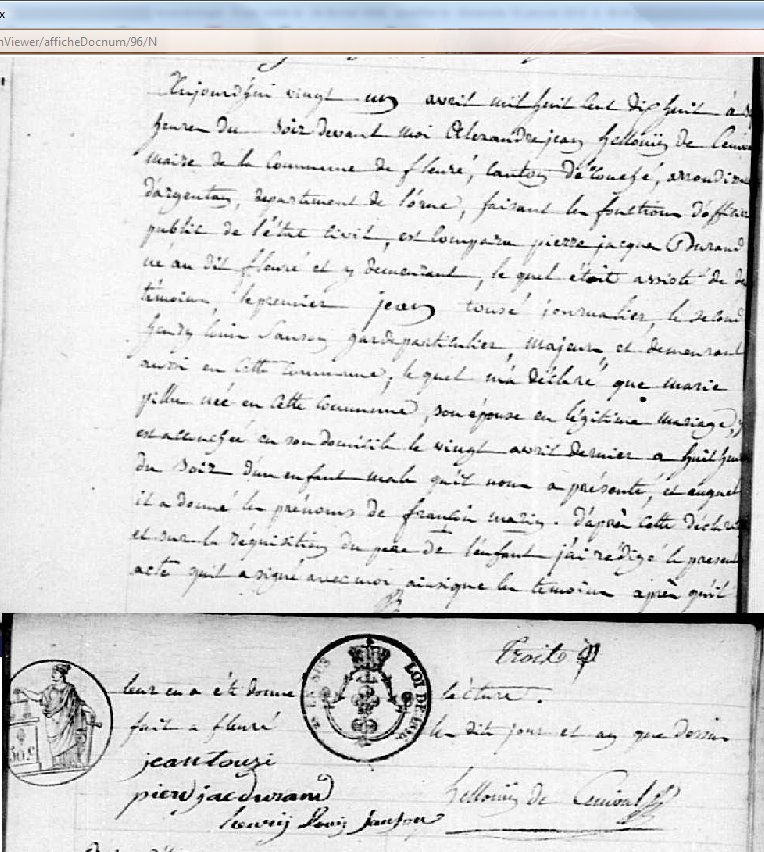 x
nViewer/afficheDocnum/96/N
Aujourd'hui vingt un avril mil huit cent dix huit à
heures du soir devant moi Alexandre jean hellouin de
maire de la Commune de fleuré, Canton D'écouché, arrondisse
d'argentan, département de l'orne, faisant les fonctions d'officier
public de l'état Civil, est Comparu pierre jacques Durand
né au dit fleuré et y demeurant, le quel étoit assisté de de
témoins, le premier jean touzé journalier, le second
henry louis Sanson garde particulier, majeurs et demeurant
aussi en Cette Commune, le quel m'a déclaré que marie
née en Cette Commune, son épouse en légitime mariage, y
est accouchée en son domicile le vingt avril dernier a huit heures
du soir d'un enfant male qu'il nous a présenté, et auquel
il a donné les prénoms de françois marin. d'après Cette déclara
et sur la réquisition du père de l'enfant j'ai rédigé le present
acte qu'il a signé avec moi ainsique les temoins après qu'il
Troite
leur en a été donné lecture.
fait a fleuré les dits jour et an que dessus
jean touzé
pierr jac durand
hellouin de
henrij Louis Sanson
LOI DE
50 C